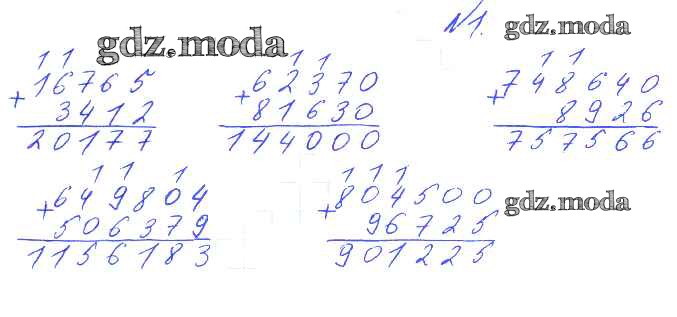 N1.
gdz.moda
gdz.moda
1 1
16765
+
3412
20177
1 1
62370
+
81630
144000
1 1
748640
+
8926
757566
1 1 1
649804
+
506379
1156183
1 1 1
804500
+
96725
901225
gdz.moda